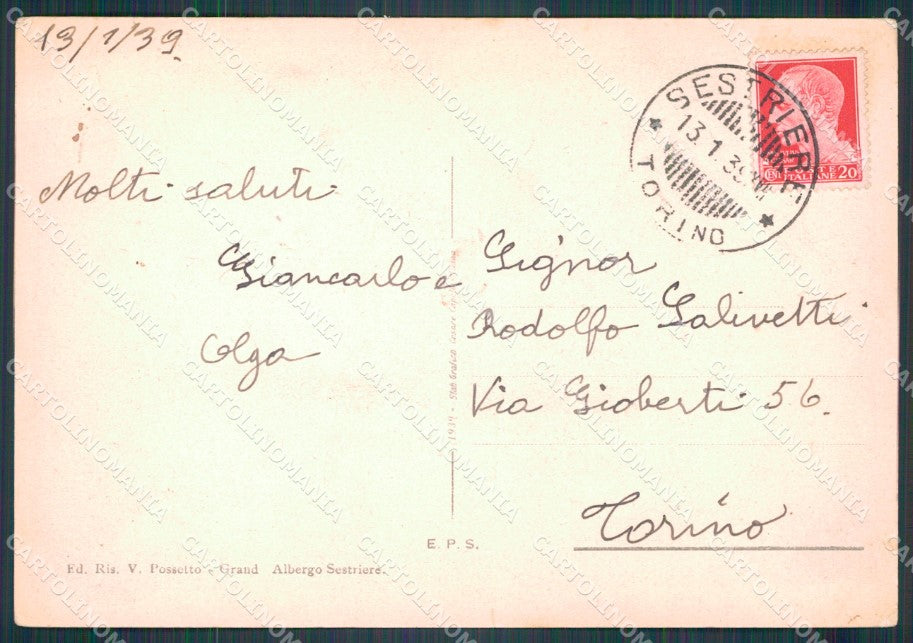 13/1/39
SESTRIERE
13.1.39
TORINO
ITALIANE 20
Molti saluti
Giancarlo e
Olga
Signor
Rodolfo Salivetti
Via Gioberti 56.
Torino
1939 - Stab. Grafico Cesare
E. P. S.
Ed. Ris. V. Possetto - Grand Albergo Sestriere.
CARTOLINOMANIA